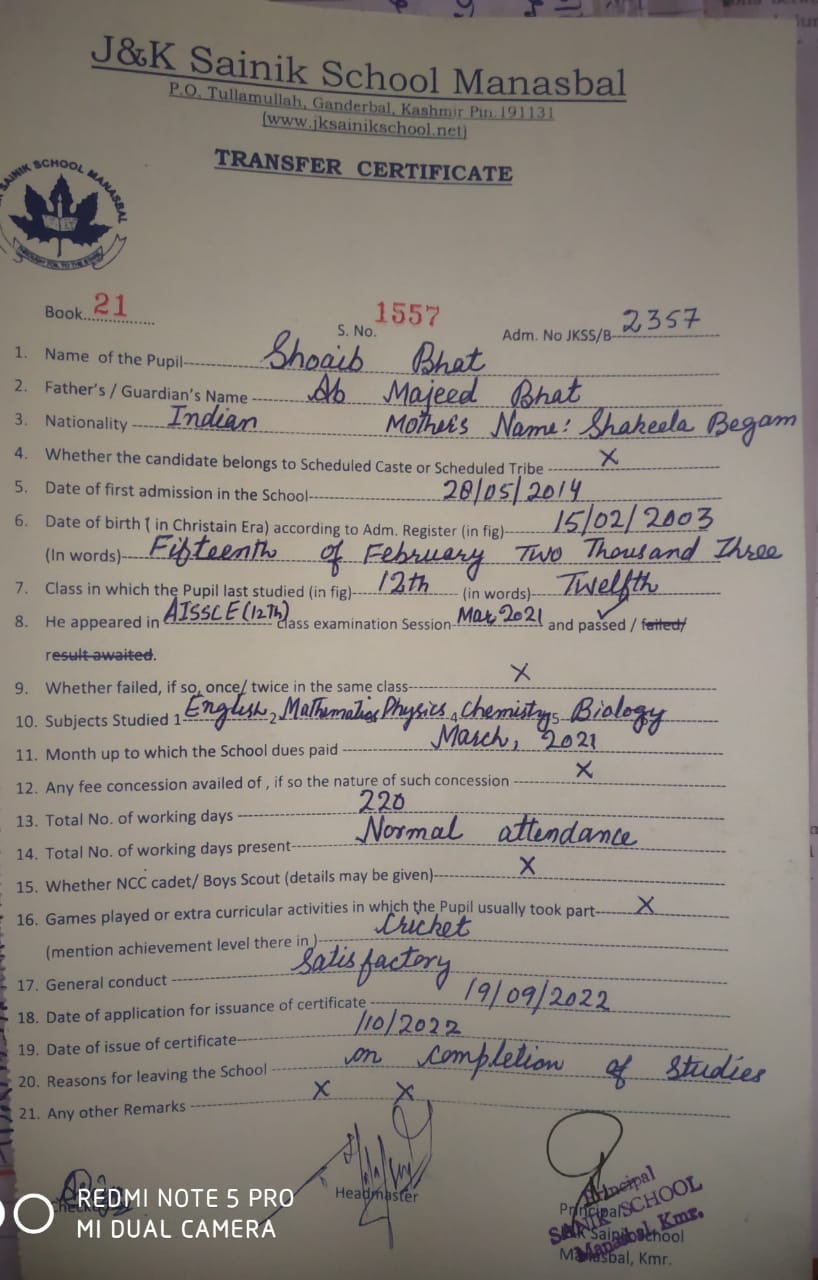 J&K Sainik School Manasbal
P.O. Tullamullah, Ganderbal, Kashmir Pin.191131
(www.jksainikschool.net)
TRANSFER CERTIFICATE
SAINIK SCHOOL MANASBAL
Book 21
S. No. 1557
Adm. No JKSS/B 2357
1. Name of the Pupil Shoaib Bhat
2. Father's / Guardian's Name Ab Majeed Bhat
3. Nationality Indian Mother's Name: Shakeela Begam
4. Whether the candidate belongs to Scheduled Caste or Scheduled Tribe X
5. Date of first admission in the School 28/05/2014
6. Date of birth ( in Christain Era) according to Adm. Register (in fig) 15/02/2003
(In words) Fifteenth of February Two Thousand Three
7. Class in which the Pupil last studied (in fig) 12th (in words) Twelfth
8. He appeared in AISSCE(12Th) class examination Session Mar, 2021 and passed / failed/
result awaited.
9. Whether failed, if so, once/ twice in the same class X
10. Subjects Studied 1 English 2 Mathematics Physics 4 Chemistry 5 Biology
11. Month up to which the School dues paid March, 2021
12. Any fee concession availed of , if so the nature of such concession X
13. Total No. of working days 220
14. Total No. of working days present Normal attendance
15. Whether NCC cadet/ Boys Scout (details may be given) X
16. Games played or extra curricular activities in which the Pupil usually took part X
(mention achievement level there in ) Cricket
17. General conduct Satisfactory
18. Date of application for issuance of certificate 19/09/2022
19. Date of issue of certificate /10/2022
20. Reasons for leaving the School on completion of Studies
21. Any other Remarks X X
Headmaster
Principal
SAINIK SCHOOL
Manasbal, Kmr.
Principal
J&K Sainik School
Manasbal, Kmr.
REDMI NOTE 5 PRO
MI DUAL CAMERA